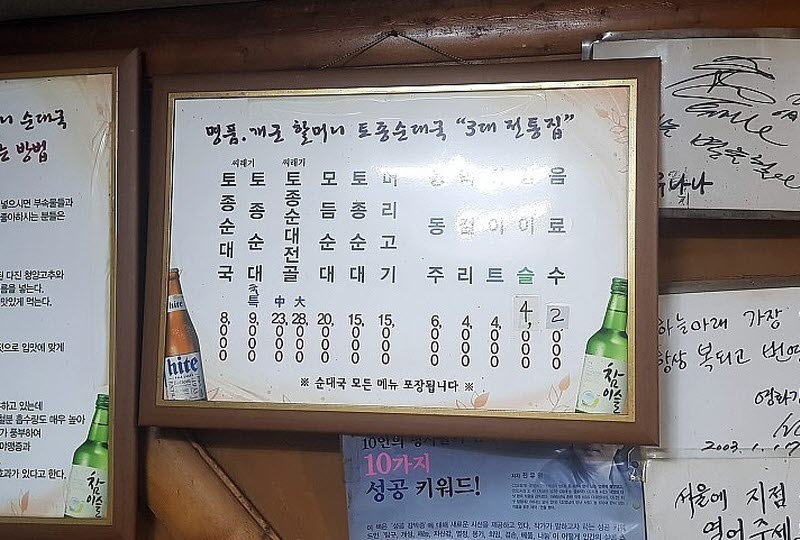 니 순대국
는 방법
넣으시면 부속물들과
좋아하시는 분들은
다진 청양고추와
름을 넣는다.
맛있게 먹는다.
전으로 입맛에 맞게
하고 있는데
철분 흡수량도 매우 높아
가 풍부하여
야명증과
효과가 있다고 한다.
참이슬
명품.개군 할머니 토종순대국 "3대 전통집"
씨래기
씨래기
토종순대국
8,000
토종순대국
특
9,000
토종순대전골
中 大
23,000
28,000
모듬순대
20,000
토종순대
15,000
머리고기
15,000
동동주
6,000
막걸리
4,000
하이트
4,000
참이슬
4,000
음료수
2,000
※ 순대국 모든 메뉴 포장됩니다 ※
hite
참이슬
10가지
성공 키워드!
유타나
하늘아래 가장
항상 복되고 번영
2003. 1. 17
서울에 지점
열어주세